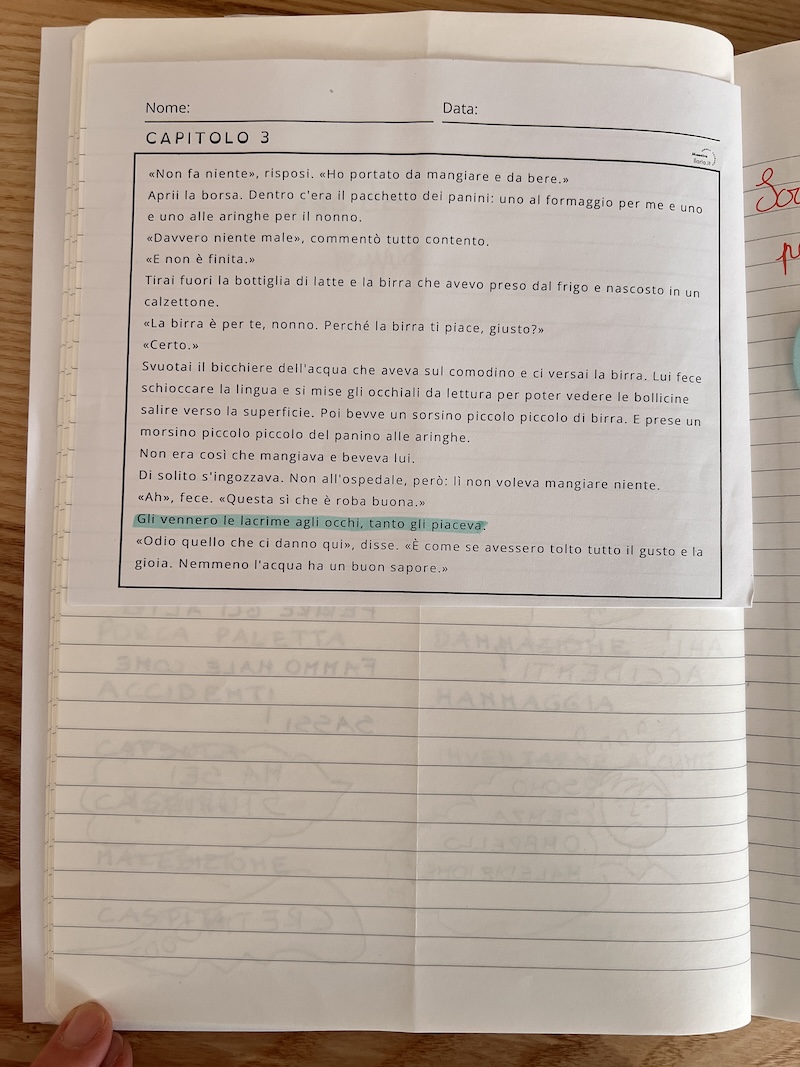 Nome:
Data:
CAPITOLO 3
«Non fa niente», risposi. «Ho portato da mangiare e da bere.»
Aprii la borsa. Dentro c'era il pacchetto dei panini: uno al formaggio per me e uno
e uno alle aringhe per il nonno.
«Davvero niente male», commentò tutto contento.
«E non è finita.»
Tirai fuori la bottiglia di latte e la birra che avevo preso dal frigo e nascosto in un
calzettone.
«La birra è per te, nonno. Perché la birra ti piace, giusto?»
«Certo.»
Svuotai il bicchiere dell'acqua che aveva sul comodino e ci versai la birra. Lui fece
schioccare la lingua e si mise gli occhiali da lettura per poter vedere le bollicine
salire verso la superficie. Poi bevve un sorsino piccolo piccolo di birra. E prese un
morsino piccolo piccolo del panino alle aringhe.
Non era così che mangiava e beveva lui.
Di solito s'ingozzava. Non all'ospedale, però: lì non voleva mangiare niente.
«Ah», fece. «Questa sì che è roba buona.»
Gli vennero le lacrime agli occhi, tanto gli piaceva.
«Odio quello che ci danno qui», disse. «È come se avessero tolto tutto il gusto e la
gioia. Nemmeno l'acqua ha un buon sapore.»
FORCA PALETTA
FAMMO MALE COME
ACCIDENTI
ACCIDENTI
MANNAGGIA
SASSI
MALEDIZIONE